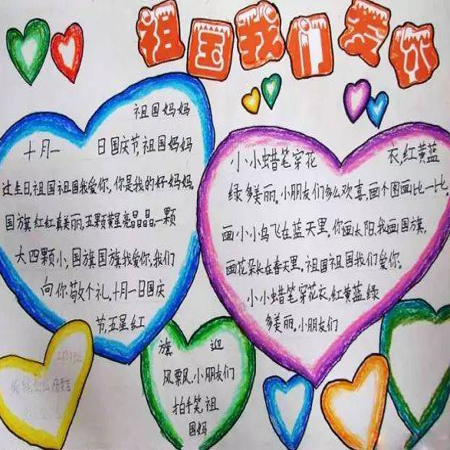 祖国我们爱你
祖国妈妈
十月一 日国庆节,祖国妈妈
过生日,祖国祖国我爱你,你是我的好妈妈,
国旗红红真美丽,五颗黄星亮晶晶,一颗
大四颗小,国旗国旗我爱你,我们
向你敬个礼,十月一日国庆
节,五星红
旗 迎
风飘,小朋友们
拍手笑,祖
国妈
小小蜡笔穿花 衣,红黄蓝
绿多美丽,小朋友们多么欢喜,画个图画比一比,
画小小鸟飞在蓝天里,你画太阳,我画国旗,
画花朵长在春天里,祖国祖国我们爱你。
小小蜡笔穿花衣,红黄蓝绿
多美丽,小朋友们